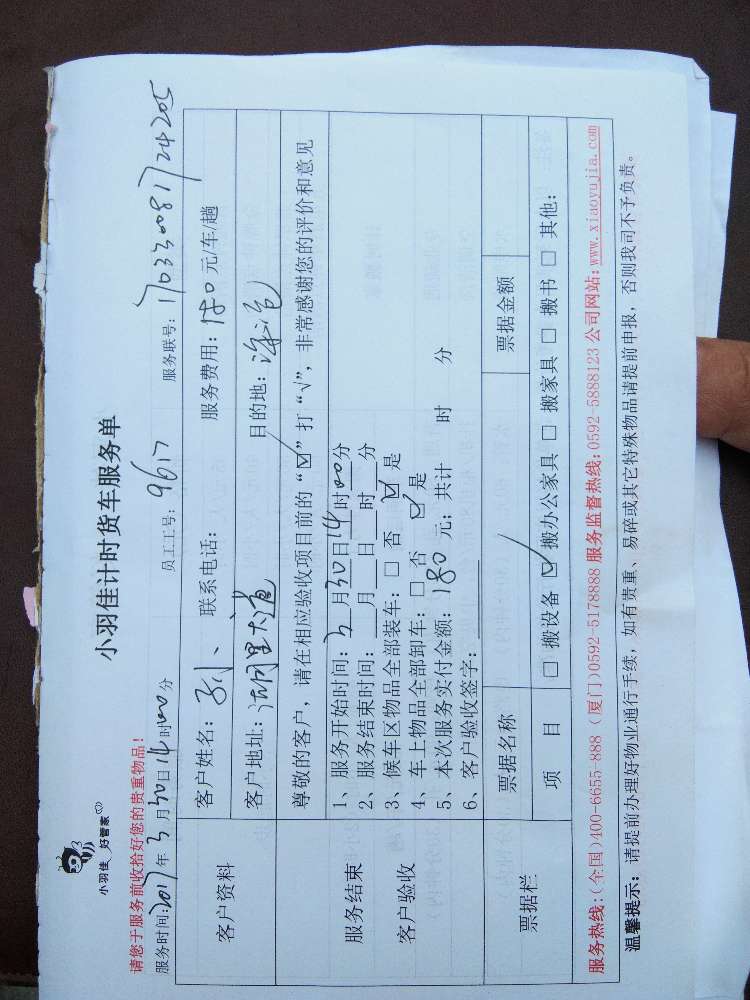 小羽佳 好管家
小羽佳计时货车服务单
请您于服务前收拾好您的贵重物品!
服务时间:2017年3月30日14时00分 员工工号:9617 服务联号:170330081724205
客户资料
客户姓名:孙、 联系电话: 服务费用:180元/车/趟
客户地址:湖里大道 目的地:海沧
服务结束
客户验收
尊敬的客户,请在相应验收项目前的“☑”打“√”,非常感谢您的评价和意见
1、服务开始时间:3月30日14时00分
2、服务结束时间:___月___日___时___分
3、候车区物品全部装车:□ 否 ☑ 是
4、车上物品全部卸车:□ 否 ☑ 是
5、本次服务实付金额:180元;共计 时 分
6、客户验收签字:
票据栏
票据名称 票据金额
项 目 □ 搬设备 ☑ 搬办公家具 □ 搬家具 □ 搬书 □ 其他:
服务热线:(全国)400-6655-888 (厦门)0592-5178888 服务监督热线:0592-5888123 公司网站:www.xiaoyujia.com
温馨提示:请提前办理好物业通行手续,如有贵重、易碎或其它特殊物品请提前申报,否则我司不予负责。